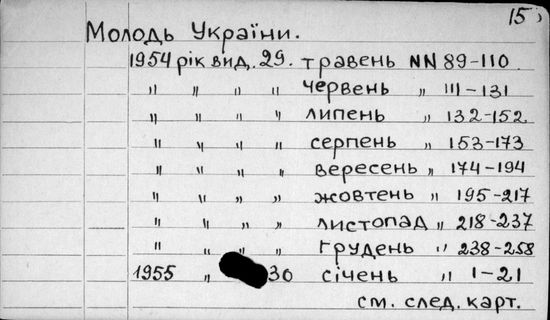 15
Молодь України.
1954 рік вид. 29. травень NN 89-110.
" " " " червень " 111-131
" " " " липень " 132-152.
" " " " серпень " 153-173
" " " " вересень " 174-194
" " " " жовтень " 195-217
" " " " листопад " 218-237
" " " " грудень " 238-258
1955 " 30 січень " 1-21
см. след. карт.